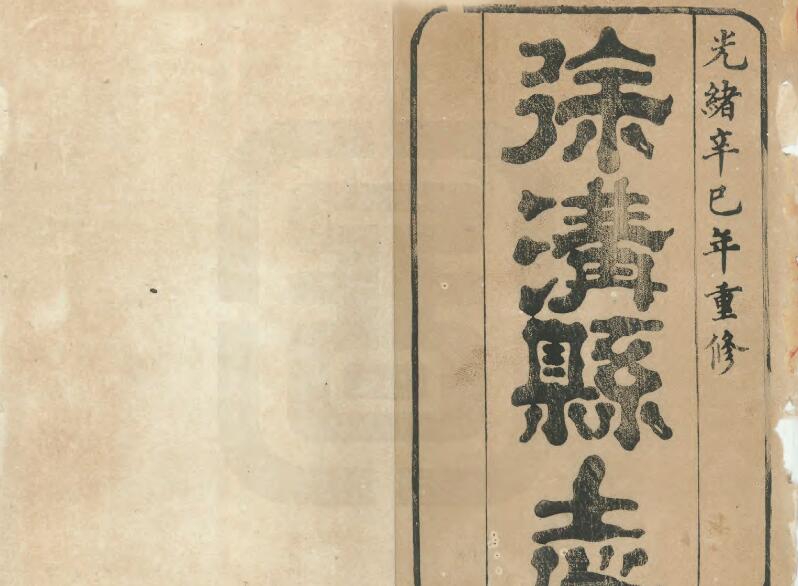 光緒辛巳年重修
徐溝縣志